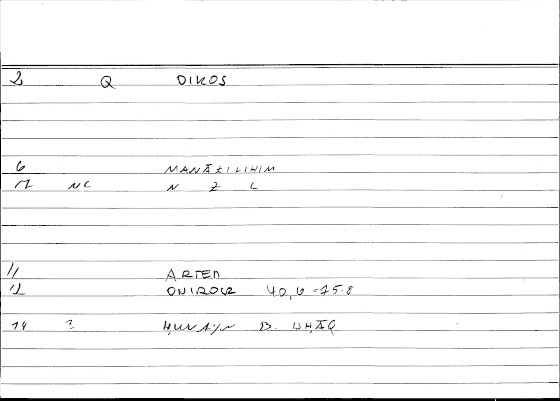 2 Q OIKOS
6 MANĀZILIHIM
17 NC N Z L
11 ARTEM
12 ONIROCR 40,6-75.8
14 ? ḤUNAYN B. ISḤĀQ